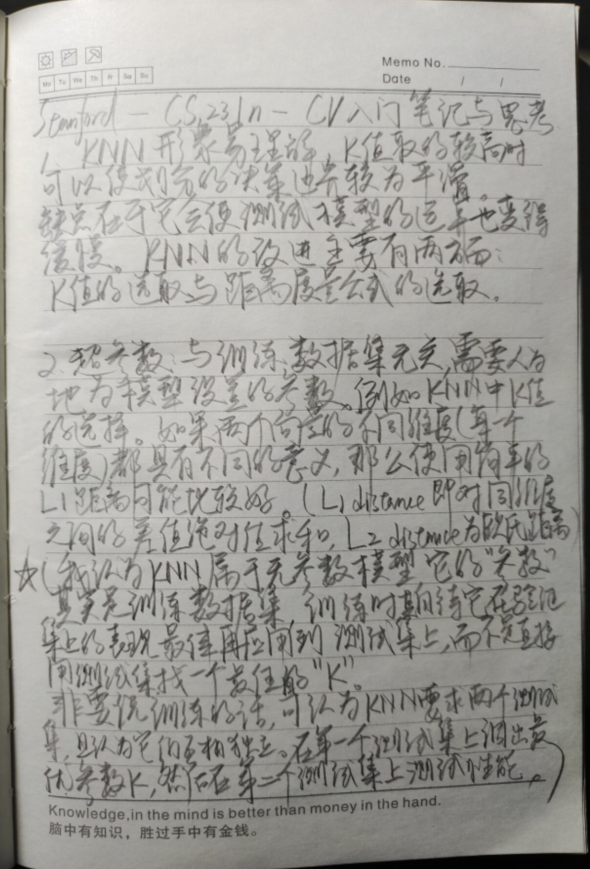 Memo No.
Mo Tu We Th Fr Sa Su
Date / /
Stanford - CS231n - CV入门笔记与思考
1. KNN 形象易理解, K值取的较高时
可以使划分的决策边界较为平滑。
缺点在于它会使测试模型的运算也变得
缓慢。KNN的改进主要有两方面:
K值的选取与距离度量公式的选取。
2. 超参数:与训练数据集无关,需要人为
地为模型设置的参数。例如KNN中K值
的选择。如果两个向量的不同维度(每一个
维度)都具有不同的意义,那么使用简单的
L1距离可能比较好。(L1 distance 即对同维度
之间的差值绝对值求和, L2 distance为欧氏距离)
☆(我认为KNN属于无参数模型 它的"参数"
其实是训练数据集 训练时期待它在验证
集上的表现最佳再应用到测试集上,而不是直接
用测试集找一个最佳的"K"。
非要说训练的话,可认为KNN要求两个测试
集,且认为它们互相独立。在第一个测试集上调出最
优参数K,然后在第二个测试集上测试性能。)
Knowledge,in the mind is better than money in the hand.
脑中有知识,胜过手中有金钱。